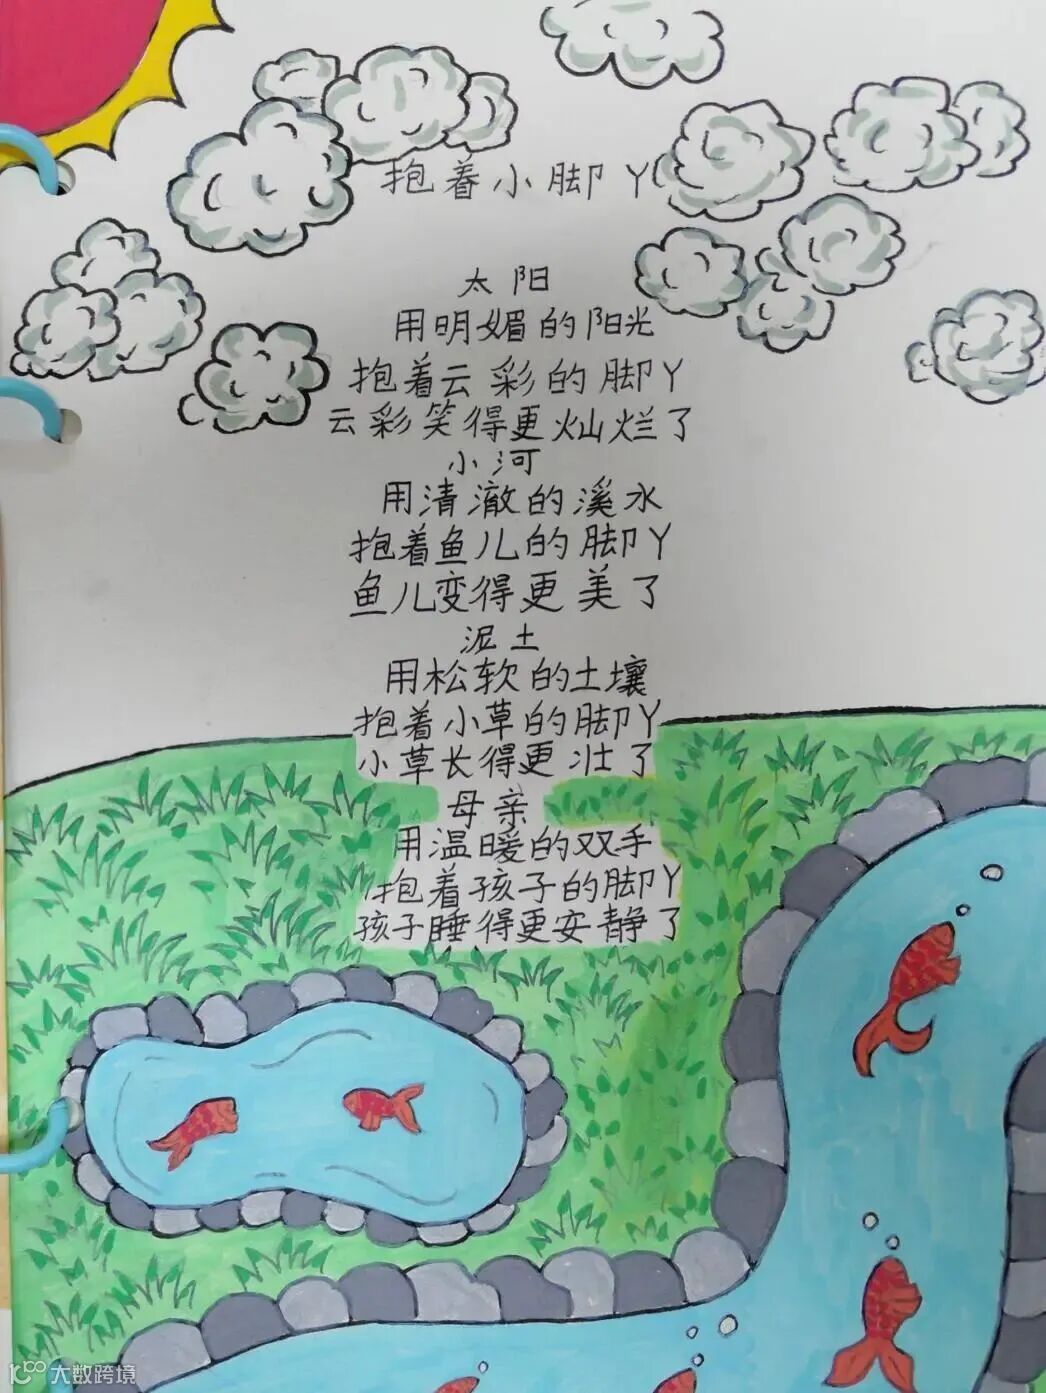 抱着小脚丫
太阳
用明媚的阳光
抱着云彩的脚丫
云彩笑得更灿烂了
小河
用清澈的溪水
抱着鱼儿的脚丫
鱼儿变得更美了
泥土
用松软的土壤
抱着小草的脚丫
小草长得更壮了
母亲
用温暖的双手
抱着孩子的脚丫
孩子睡得更安静了
大数跨境